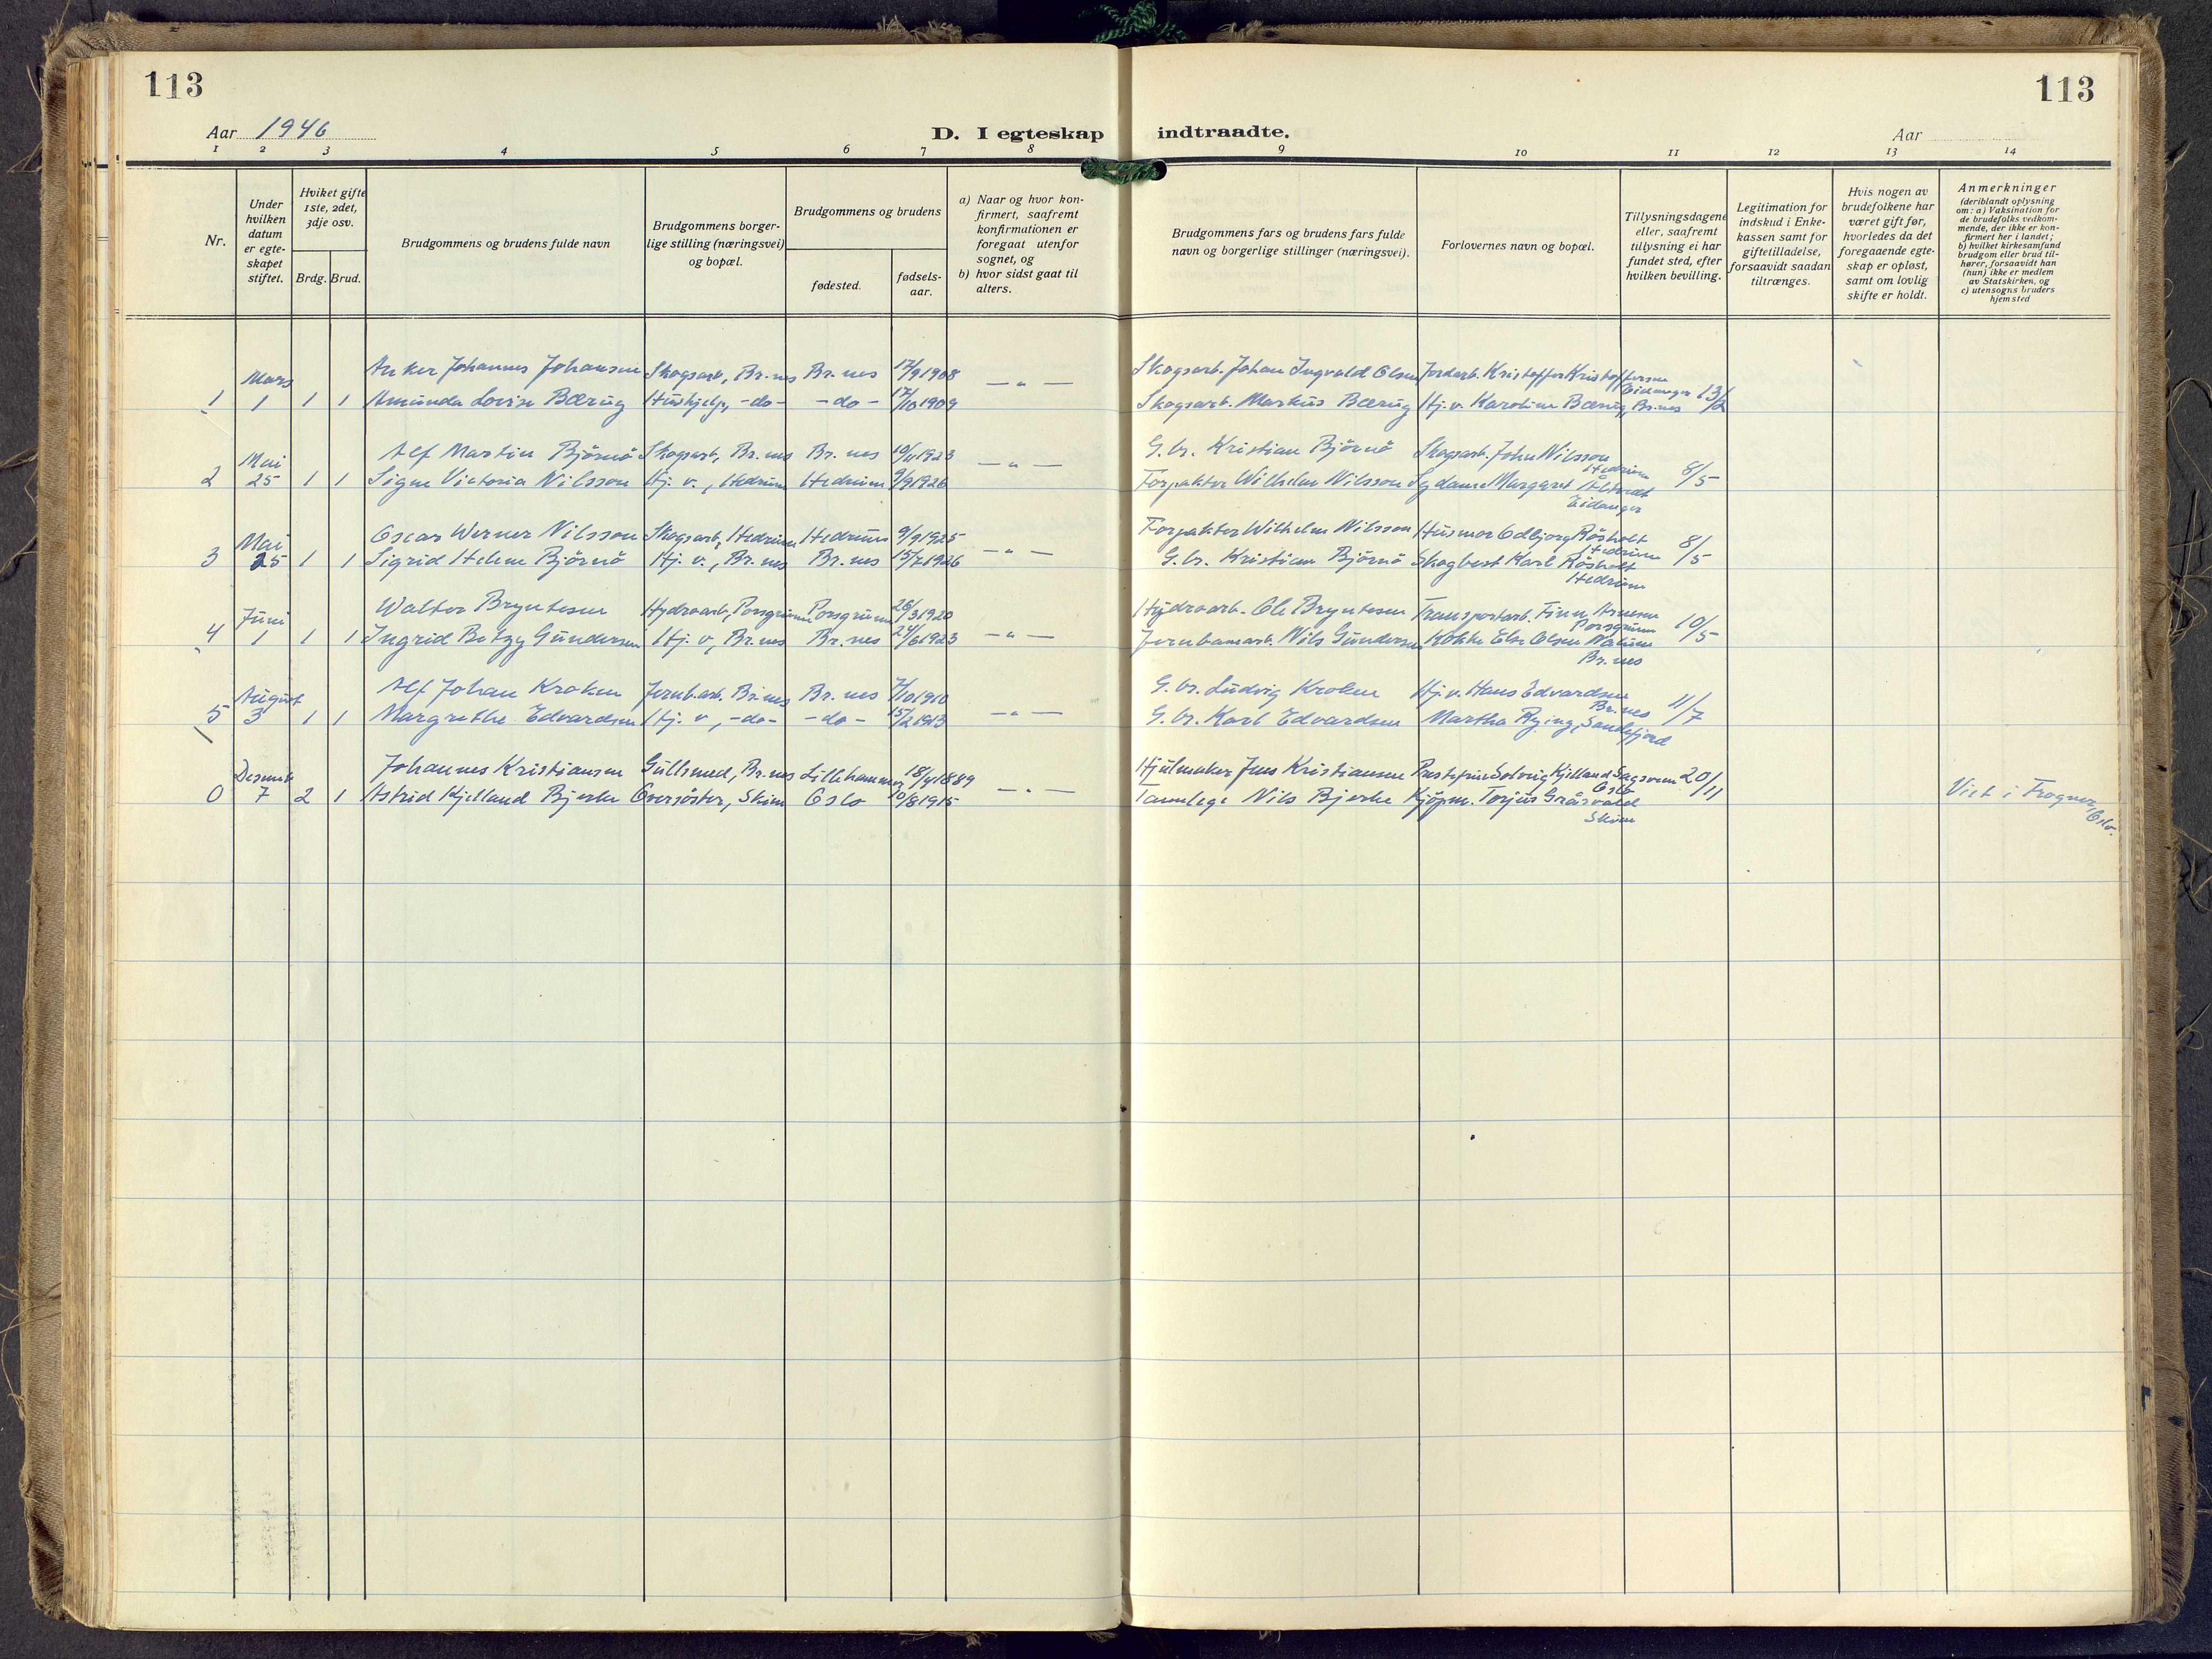 113
113
Aar 1946
D. I egteskap indtraadte.
Aar
1 2 3 4 5 6 7 8 9 10 11 12 13 14
Nr.
Under
hvilken
datum
er egte-
skapet
stiftet.
Hviket gifte
1ste, 2det,
3dje osv.
Brdg. Brud.
Brudgommens og brudens fulde navn
Brudgommens borger-
lige stilling (næringsvei)
og bopæl.
Brudgommens og brudens
fødested.
fødsels-
aar.
a) Naar og hvor kon-
firmert, saafremt
konfirmationen er
foregaat utenfor
sognet, og
b) hvor sidst gaat til
alters.
Brudgommens fars og brudens fars fulde
navn og borgerlige stillinger (næringsvei).
Forlovernes navn og bopæl.
Tillysningsdagene
eller, saafremt
tillysning ei har
fundet sted, efter
hvilken bevilling.
Legitimation for
indskud i Enke-
kassen samt for
giftetilladelse,
forsaavidt saadan
tiltrænges.
Hvis nogen av
brudefolkene har
været gift før,
hvorledes da det
foregaaende egte-
skap er opløst,
samt om lovlig
skifte er holdt.
Anmerkninger
(deriblandt oplysning
om: a) Vaksination for
de brudefolks vedkom-
mende, der ikke er kon-
firmert her i landet;
b) hvilket kirkesamfund
brudgom eller brud til-
hører, forsaavidt han
(hun) ikke er medlem
av Statskirken, og
c) utensogns bruders
hjemsted
Mars Anker Johannes Johansen Skogsarb, Br.nes Br.nes 17/9 1908 — " — Skogsarb. Johan Ingvald Olsen Jordarb. Kristoffer Kristoffersen
Eidanger
1 1 1 1 Amunda Lovise Bærug Hushjelp, -do- -do- 17/10 1909 Skogsarb. Markus Bærug Hj.v. Karoline Bærug, Br.nes 13/2
Mai Alf Martin Björnö Skogsarb, Br.nes Br.nes 10/11 1923 — " — G.br. Kristian Björnö Skogsarb. John Nilsson
Hedrum
2 25 1 1 Signe Victoria Nilsson Hj.v., Hedrum Hedrum 9/9 1926 Forpakter Wilhelm Nilsson Sydame Margaret 8/5
Eidanger
Mai Oscar Werner Nilsson Skogsarb, Hedrum Hedrum 9/9 1925 — " — Forpakter Wilhelm Nilsson Husmor Odbjorg Rösholt
Hedrum
3 25 1 1 Sigrid Helene Björnö Hj.v., Br.nes Br.nes 15/7 1926 G.br. Kristian Björnö Skogbest Karl Rösholt 8/5
Hedrum
Juni Walter Bryntesen Hydroarb, Porsgrunn Porsgrunn 26/3 1920 — " — Hydroarb. Ole Bryntesen Transportarb. Finn Arnesen
Porsgrunn
4 1 1 1 Ingrid Betzy Gundersen Hj.v, Br.nes Br.nes 24/6 1923 Jernbanearb. Nils Gundersen Kokke Else Olsen 10/5
Br.nes
August Alf Johan Kroken Jernb.arb. Br.nes Br.nes 7/10 1910 — " — G.br. Ludvig Kroken Hj.v. Hans Edvardsen
Br.nes
5 3 1 1 Margrethe Edvardsen Hj.v, -do- -do- 15/2 1913 G.br. Karl Edvardsen Martha Rying, Sandefjord 11/7
Desemb Johannes Kristiansen Gullsmed, Br.nes Lillehammer 18/9 1889 — " — Hjulmaker Jens Kristiansen Prestefrue Solveig Kjelland Sagsveen
Oslo
0 7 2 1 Astrid Kjelland Bjerke Oversöster, Skien Oslo 10/8 1915 Tannlege Nils Bjerke Kjöpm. Torjus 20/11 Viet i Frogner, Oslo.
Skien